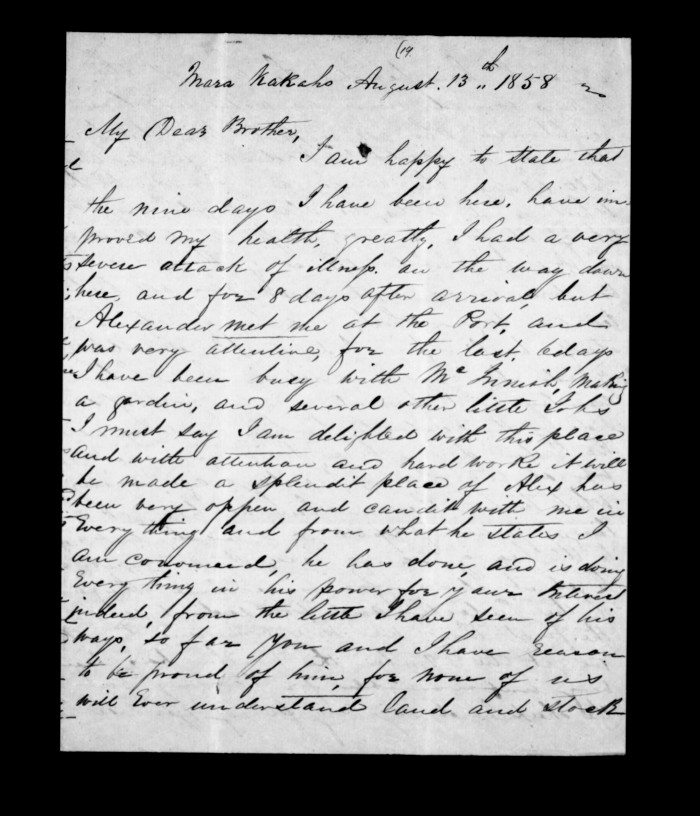 (19
Mara Kakaho August. 13th 1858
My Dear Brother,
I am happy to state that
the nine days I have been here, have im
proved my health, greatly, I had a very
severe attack of illness. on the way down
here, and for 8 days after arrival, but
Alexander met me at the Port, and
was very attentive, for the last, 6 days
I have been busy with Mc Innish, making
a gardin, and several other little Jobs
I must say I am delighted with this place
and with attention and hard worke it will
be made a splendit place of Alex has
been very oppen and candit with me in
Every thing and from what he states I
am convinced, he has done, and is doing
Every thing in his power for your Interest
indeed, from the little I have seen of his
ways, so far You and I have reason
to be proud of him, for none of us
will Ever understand land and stock